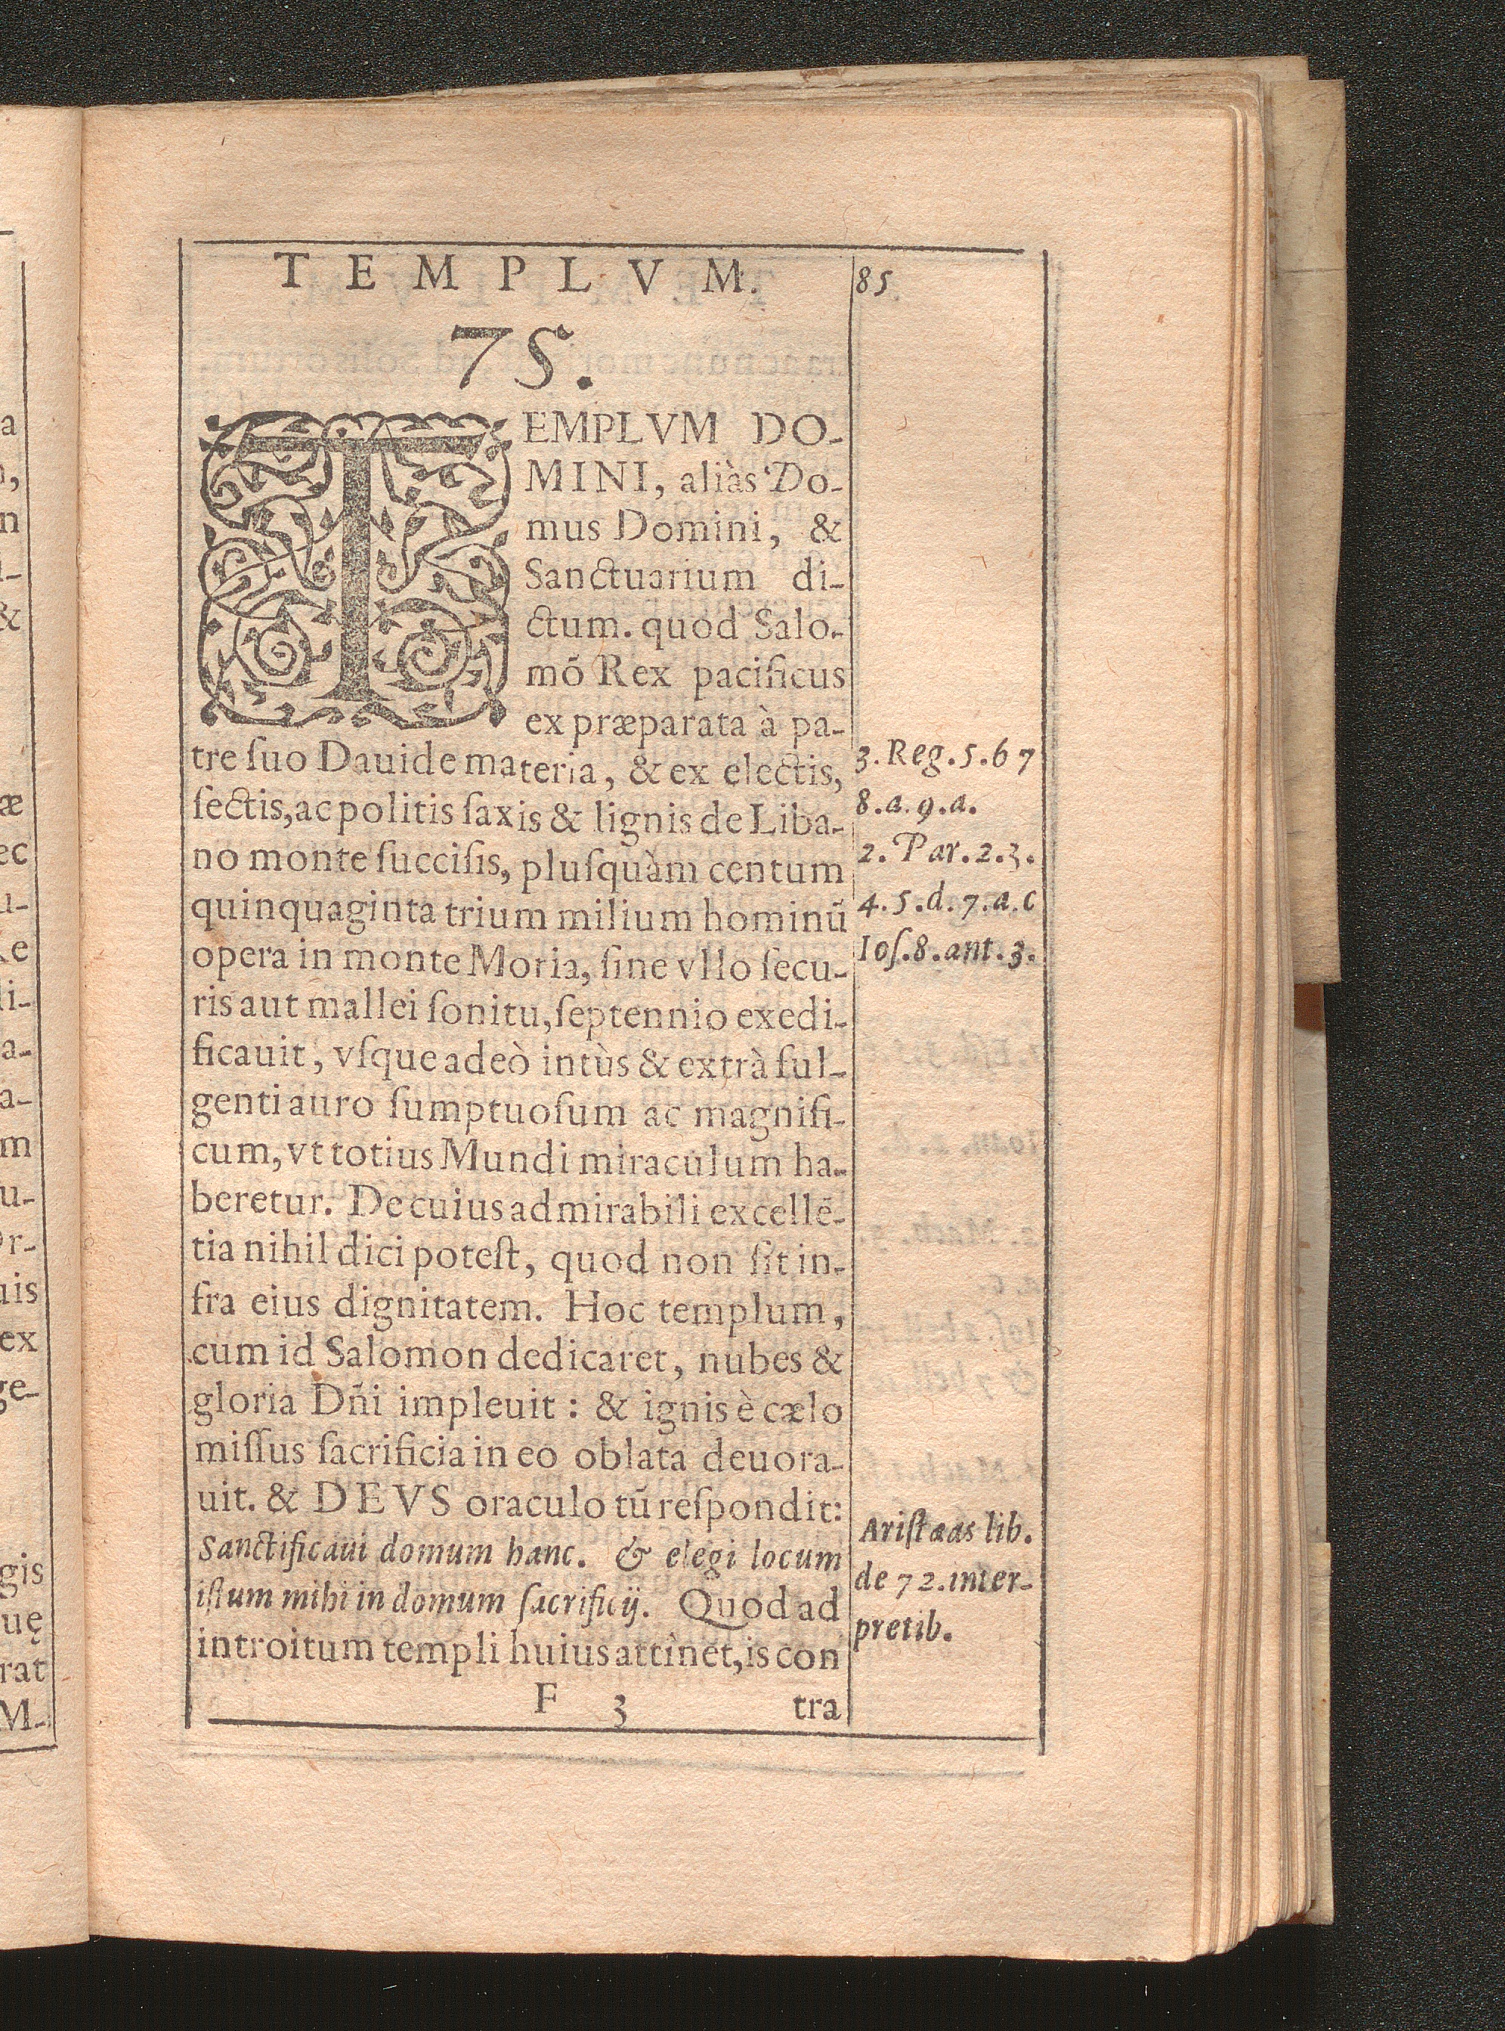 TEMPLVM. 85.
75.
TEMPLVM DO-
MINI, aliàs Do-
mus Domini, &
Sanctuarium di-
ctum. quod Salo-
mõ Rex pacificus
ex præparata à pa-
tre ſuo Dauide materia, & ex electis,
ſectis, ac politis ſaxis & lignis de Liba-
no monte ſucciſis, pluſquàm centum
quinquaginta trium milium hominũ
opera in monte Moria, ſine vllo ſecu-
ris aut mallei ſonitu, ſeptennio exedi-
ficauit, vſque adeò intùs & extrà ful-
genti auro ſumptuoſum ac magnifi-
cum, vt totius Mundi miraculum ha-
beretur. De cuius admirabili excellẽ-
tia nihil dici poteſt, quod non ſit in-
fra eius dignitatem. Hoc templum,
cum id Salomon dedicaret, nubes &
gloria Dñi impleuit: & ignis è cælo
miſſus ſacrificia in eo oblata deuora-
uit. & DEVS oraculo tũ reſpondit:
Sanctificaui domum hanc. & elegi locum
iſtum mihi in domum ſacrificij. Quod ad
introitum templi huius attinet, is con
F 3 tra
3. Reg. 5. 6 7
8. a. 9. a.
2. Par. 2. 3.
4. 5. d. 7. a. c
Ioſ. 8. ant. 3.
Ariſtæas lib.
de 72. inter-
pretib.
a
n,
n
&
æ
ec
u-
li-
a-
a-
m
u-
r-
uis
ex
ge-
gis
uę
rat
M-